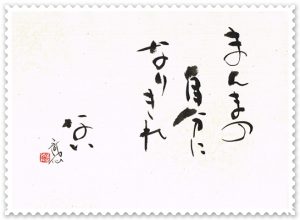 まんまの
自分に
なりきれ
ない